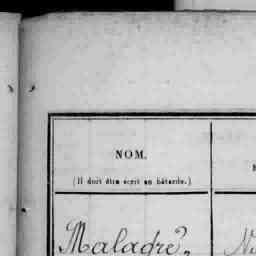 NOM.
(Il doit être écrit en bâtarde.)
Maladré.